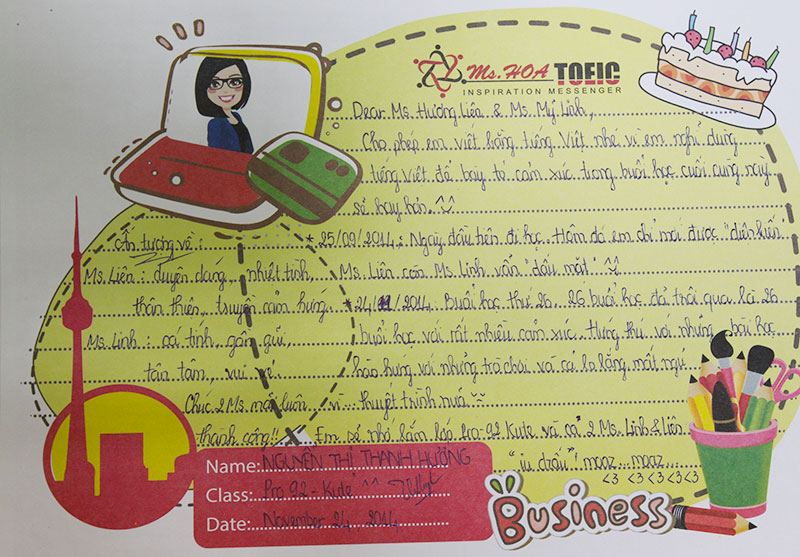 Ms. HOA TOEIC
INSPIRATION MESSENGER
Dear Ms. Hương Liên & Ms. Mỹ Linh,
Cho phép em viết bằng tiếng Việt nhé vì em nghĩ dùng
tiếng việt để bày tỏ cảm xúc trong buổi học cuối cùng này
sẽ hay hơn. ^^
* 25/09/2014: Ngày đầu tiên đi học. Hôm đó em chỉ mới được "diện kiến"
Ms. Liên còn Ms. Linh vẫn "dấu mặt" ^^
* 24/11/2014. Buổi học thứ 26. 26 buổi học đã trôi qua là 26
buổi học với rất nhiều cảm xúc. Hứng thú với những bài học
hào hứng với những trò chơi và cả lo lắng, mất ngủ
vì... thuyết trình nữa
Em sẽ nhớ lắm lớp Pro-92 Kute và cả 2 Ms. Linh & Liên
"iu dấu"! moaz...moaz
<3 <3 <3 <3 <3
Ấn tượng về:
Ms. Liên: duyên dáng, nhiệt tình,
thân thiện, truyền cảm hứng.
Ms. Linh: cá tính, gần gũi,
tận tâm, vui vẻ.
Chúc 2 Ms. mãi luôn
thành công!!
Name: NGUYỄN THỊ THANH HƯỜNG
Class: Pro 92 - Kute ^^
Date: November 24 2014
Business